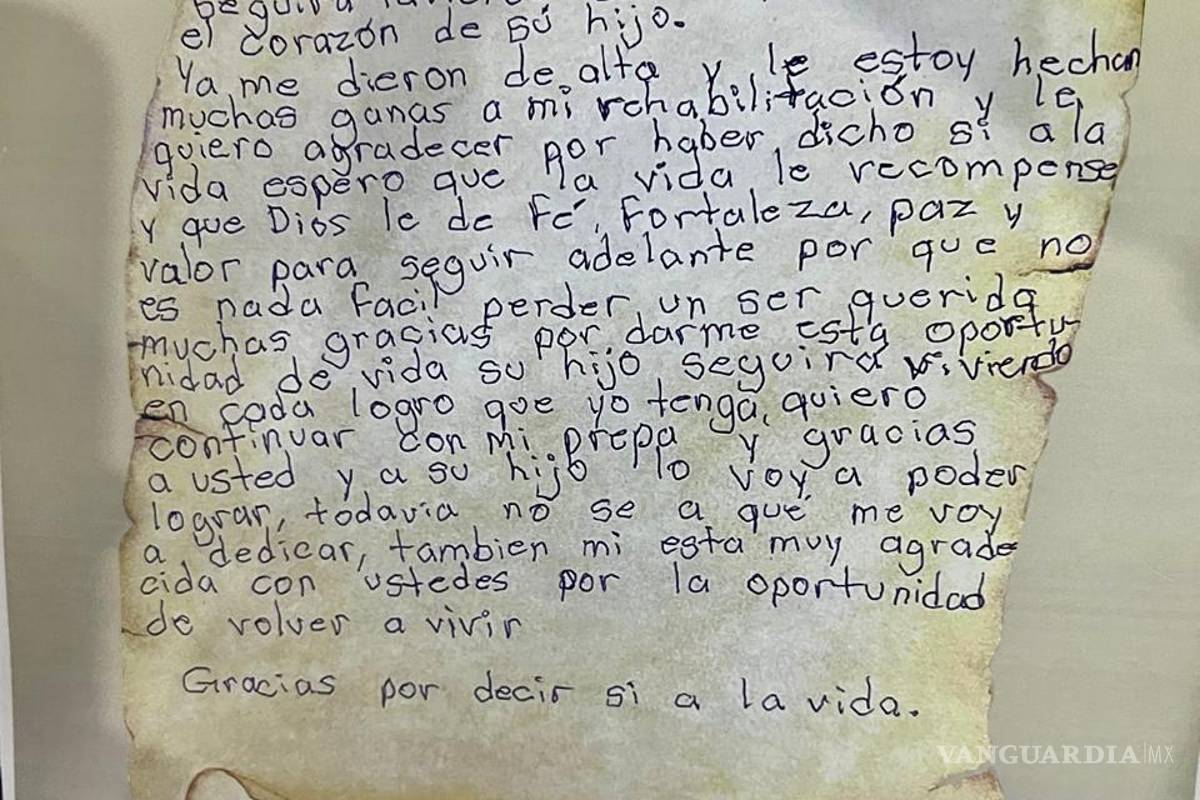 seguirá
el corazón de su hijo.
Ya me dieron de alta y le estoy hechan
muchas ganas a mi rehabilitación y le
quiero agradecer por haber dicho si a la
vida espero que la vida le recompense
y que Dios le de Fé, Fortaleza, paz y
valor para seguir adelante por que no
es nada facil perder un ser querida
muchas gracias por darme esta oportu-
nidad de vida su hijo seguira viviendo
en cada logro que yo tenga, quiero
continuar con mi prepa y gracias
a usted y a su hijo lo voy a poder
lograr, todavia no se a que me voy
a dedicar, tambien mi esta muy agrade
cida con ustedes por la oportunidad
de volver a vivir
Gracias por decir si a la vida.
VANGUARDIA|MX